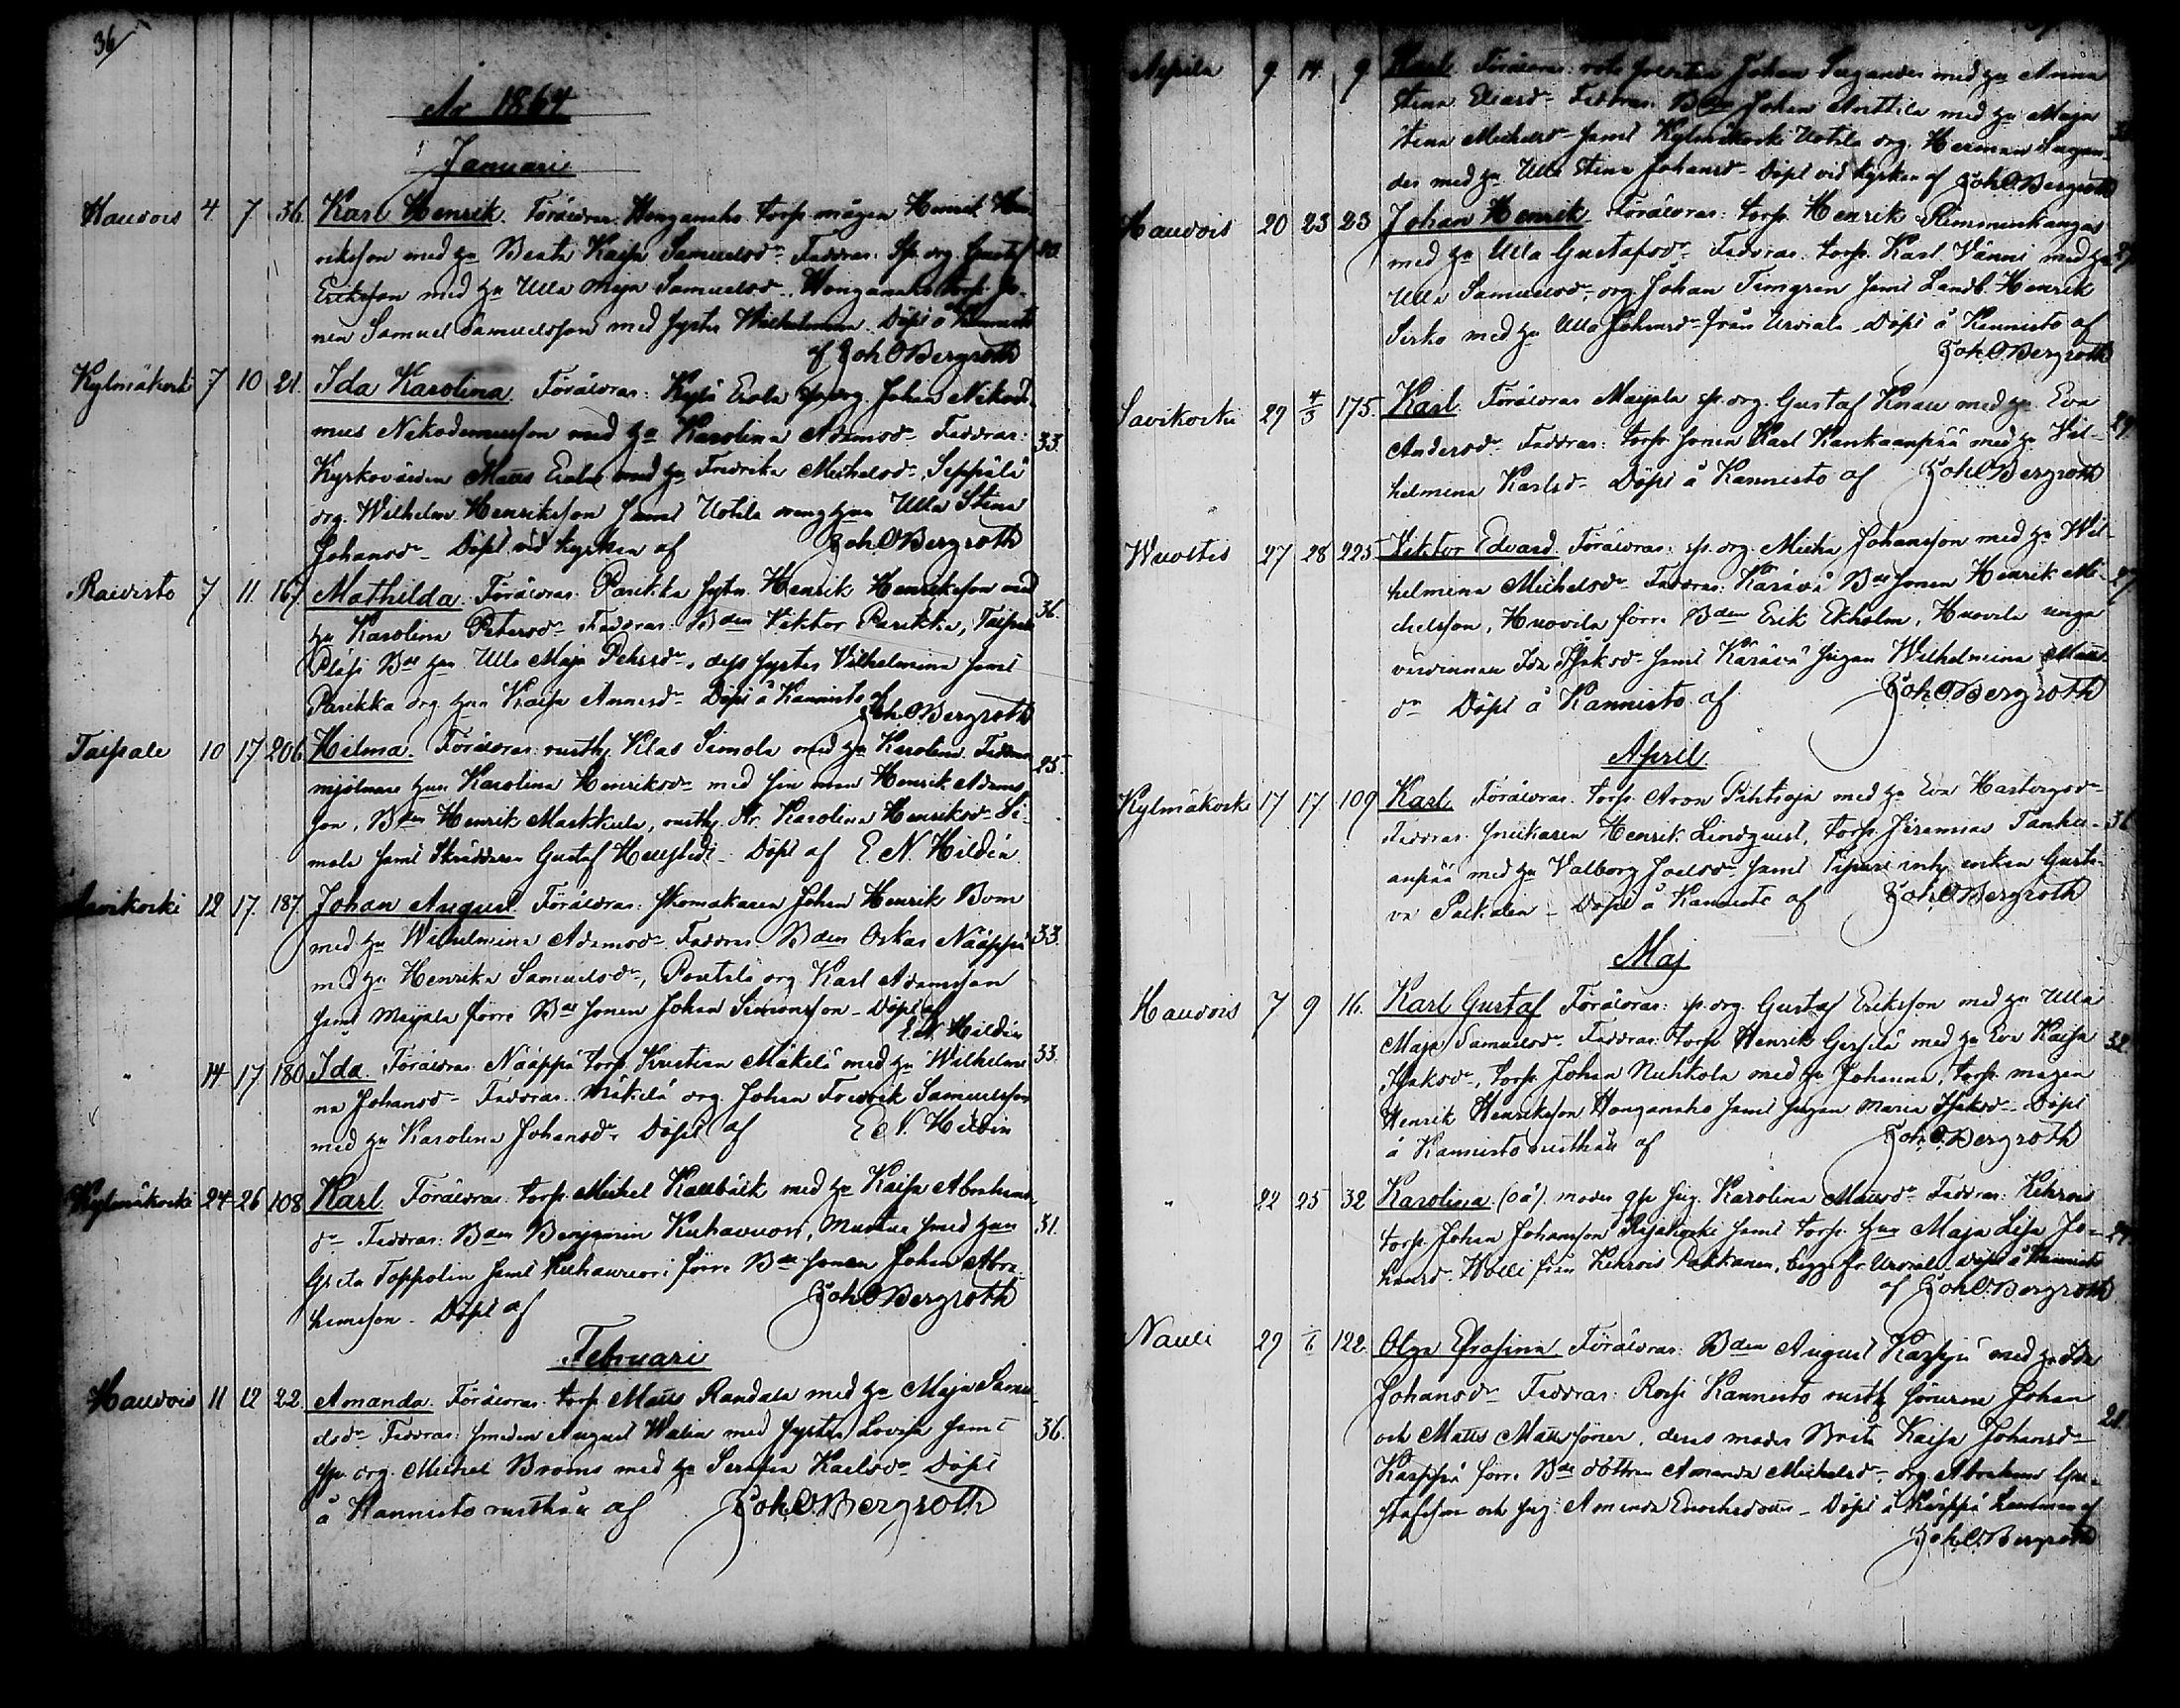 36
År 1864
Januari
Haudois 4 7 36. Karl Henrik. Föräldrar: Honganoho torp. mågen Henrik Hen-
riksson med h:u Beata Kaisa Samuelsd:r Faddrar: Sp. drg. Gustaf 20.
Eriksson med h:u Ulla Maja Samuelsd:r, Honganoho torp. so-
nen Samuel Samuelsson med syster Wilhelmina. Döpt å Kannisto
af Joh. O. Bergroth
Kylmäkoski 7 10 21. Ida Karolina. Föräldrar: Kylä Erola sp. drg. Johan Nikode-
mus Nikodemusson med h:u Karolina Adamsd:r Faddrar: 33.
Kyrkovärden Matts Erola med h:u Fredrika Michelsd:r, Seppälä
drg. Wilhelm Henriksson samt Uotila dreng h:un Ulla Stina
Johansd:r Döpt vid kyrkan af Joh. O. Bergroth
Raivisto 7 11. 167 Mathilda. Föräldrar: Parikka sytn. Henrik Henriksson med
h:u Karolina Petersd:r Faddrar: B:den Viktor Parikka, Taipale 36.
B:de h:un Ulla Maja Pehrsd:r, dess syster Vilhelmina samt
Parikka drg. h:un Kaisa Annasd:r Döpt å Kannisto af
Joh. O. Bergroth
Taipale 10 17 206 Hilma. Föräldrar: rusth. Klas Simola med h:u Karolina. Faddrar:
mjölnare h:un Karolina Henriksd:r med sin man Henrik Adams- 25.
son, B:den Henrik Markkula, rusth. Karolina Henriksd:r Si-
mola samt Skräddaren Gustaf Döpt af E. N. Hildén
Savikoski 12 17. 187. Johan August. Föräldrar: Skomakaren Johan Henrik Bom
med h:u Wilhelmina Adamsd:r Faddrar: B:den Oskar Nääppä 33.
med h:u Henrika Samuelsd:r, Pentilä drg Karl Adamsson
samt Maijala förre B:de sonen Johan Simonsson. Döpt af
E. N. Hildén
" 14 17 180 Ida. Föräldrar: Nääppä torp. Kristian Mäkelä med h:u Wilhelmi- 33.
na Johansd:r Faddrar: Mäkelä drg. Johan Fredrik Samuelsson
med h:u Karolina Johansd:r. Döpt af E. N. Hildén
Kylmäkoski 24 26 108 Karl. Föräldrar: torp. Mickel Kallbäck med h:u Kaisa Abrahams-
d:r Faddrar: B:den Benjamin Kuhavuori, h:un 31.
Greta Toppolin samt Kuhavuori förre B:de sonen Johan Abra-
hamsson. Döpt af Joh. O. Bergroth
Februari
Haudois 11 12 22. Amanda. Föräldrar: torp. Matts Randala med h:u Maja Samu-
elsd:r Faddrar: smeden August Walin med syster Lovisa samt 36.
sp. drg. Michel Broms med h:u Serafia Karlsd:r Döpt
å Kannisto rusthåll af Joh. O. Bergroth
9 14 9 Karl. Föräldrar: rote soldaten Johan Sugander med h:u Anna
Stina Eliasd:r Faddrar: B:den Johan Anttila med h:u Maja
Stina Michelsd:r samt Kylmäkoski Uotila drg. Herman Sugan-
der med h:u Ulla Stina Johansd:r Döpt vid kyrkan af Joh. O. Bergroth
Haudois 20 23 23 Johan Henrik. Föräldrar: torp. Henrik Rimminkangas
med h:u Ulla Gustafsd:r Faddrar: torp. Karl Vänni med h:u
Ulla Samuelsd:r, drg. Johan Timgren samt Landb. Henrik
Sirko med h:u Ulla Johansd:r från Urdiala. Döpt å Kannisto af
Joh. O. Bergroth
Savikoski 29 4/3 175. Karl. Föräldrar: Maijala sp. drg. Gustaf Knall med h:u Eva
Andersd:r Faddrar: torp. sonen Karl Kankaanpää med h:u Vil- 29
helmina Karlsd:r Döpt å Kannisto af Joh. O. Bergroth
Wuoltis 27 28 225 Viktor Edvard. Föräldrar: sp. drg. Micka Johansson med h:u Wil-
helmina Michelsd:r Faddrar: Kärävä B:de sonen Henrik Mi- 27
chelsson, Huovila förre B:den Erik Ekholm, Huovila unga
värdinnan Ida Isaksd:r samt Kärävä pigan Wilhelmina Matts-
d:r Döpt å Kannisto af Joh. O. Bergroth
April
Kylmäkoski 17 17 109 Karl. Föräldrar: torp. Aron Pihtioja med h:u Eva
Faddrar: snickaren Henrik Lindqvist, torp. Jeremias Tanhu-
anpää med h:u Valborg Joelsd:r samt enkan Gusta-
va Palkalen. Döpt å Kannisto af Joh. O. Bergroth
Maj
Haudois 7 9 16. Karl Gustaf. Föräldrar: sp. drg. Gustaf Eriksson med h:u Ulla
Maja Samuelsd:r Faddrar: torp. Henrik Gersilä med h:u Eva Kaisa 32
Isaksd:r, torp. Johan Nuhkola med h:u Johanna, torp. mågen
Henrik Henriksson Honganoho samt pigan Maria Isaksd:r. Döpt
å Kannisto rusthåll af Joh. O. Bergroth
" 22 25 32 Karolina. (oä). moder pig. Karolina Mattsd:r Faddrar: Kehrois
torp. Johan Johansson samt torp. h:un Maja Lisa Jo-
hansd:r Holli från Kehrois Pakkanen, begge fr. Urdiala. Döpt å Kannisto
af Joh. O. Bergroth
Nauli 29 1/6 122 Olga Efrosina. Föräldrar: B:den August Kärppä med h:u Ida
Johansd:r Faddrar: Kannisto rusth. sönerne Johan
och Matts Mattssöner, deras moder Brita Kaisa Johansd:r 21.
Kärppä förre B:de dottren Amanda Michelsd:r, drg. Abraham Gu-
stafsson och pig. Amanda Enochsdotter. Döpt å Kärppä hemman af
Joh. O. Bergroth